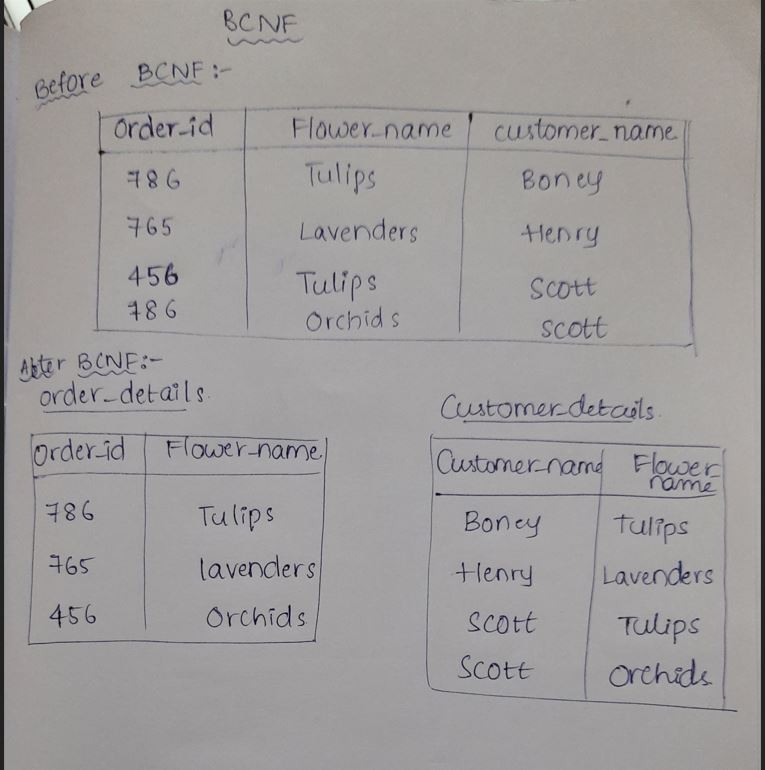 BCNF
Before BCNF:-
Order_id Flower_name customer_name
786 Tulips Boney
765 Lavenders Henry
456 Tulips Scott
786 Orchids Scott
After BCNF:-
order_details.
Order_id Flower_name
786 Tulips
765 lavenders
456 Orchids
Customer_details.
Customer_name Flower
name
Boney tulips
Henry Lavenders
Scott Tulips
Scott Orchids